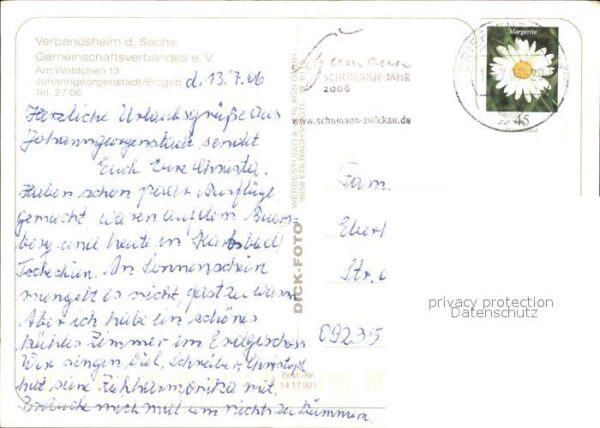 Verbandsheim d. Sächs.
Gemeinschaftsverbandes e. V.
Am Wäldchen 13
Johanngeorgenstadt/Erzgeb
Tel. 27 06
d. 13.7.06
Herzliche Urlaubsgrüße aus
Johanngeorgenstadt sendet
Euch Eure Christa.
Haben schon paar Ausflüge
gemacht waren auf dem
berg und heute in Karlsbad
Tschechien. An Sonnenschein
mangelt es nicht fast zu warm
Aber ich habe ein schönes
kühles Zimmer im Erdgeschoss
Wir singen viel, Christoph
hat seine Ziehharmonika mit.
Brauche mich mal um nichts zu kümmern.
DICK-FOTO
WERBESTUDIO & VERLAGS GMBH
Best.-Nr
14 17 001
Schumann
SCHUMANN-JAHR
2006
www.schumann-zwickau.de
Margerite
45
Fam.
Ebert
Str.
09235
privacy protection
Datenschutz